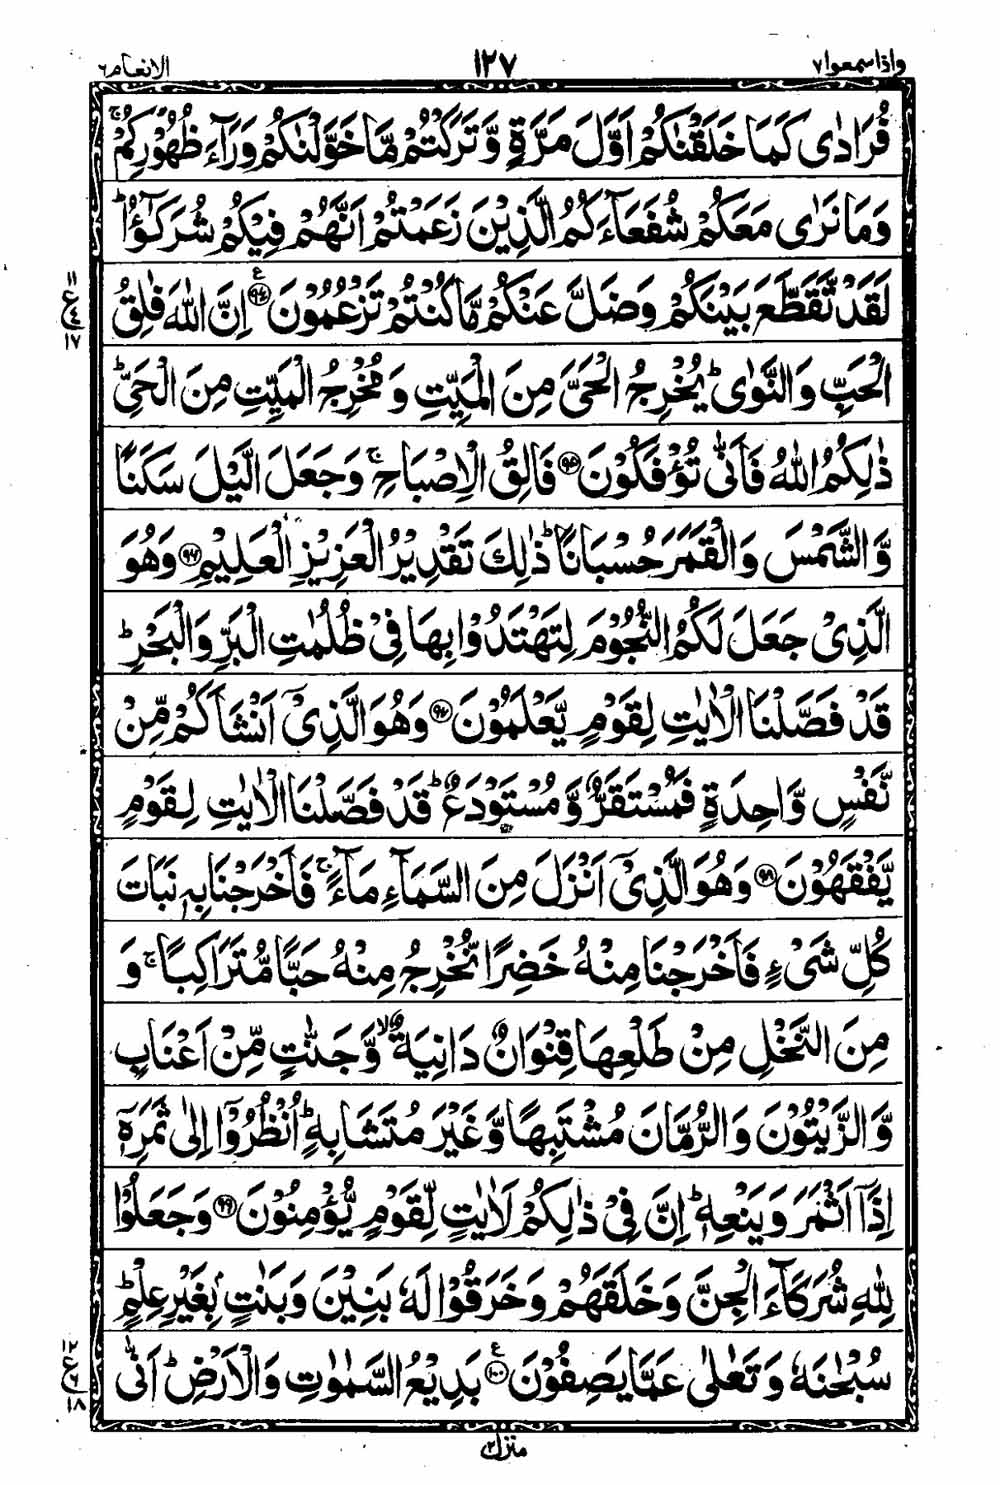 واذا سمعوا ٧ ١٢٧ الانعام ٦
فُرَادٰى كَمَا خَلَقْنٰكُمْ اَوَّلَ مَرَّةٍ وَّتَرَكْتُمْ مَّا خَوَّلْنٰكُمْ وَرَآءَ ظُهُوْرِكُمْ ۚ
وَمَا نَرٰى مَعَكُمْ شُفَعَآءَكُمُ الَّذِيْنَ زَعَمْتُمْ اَنَّهُمْ فِيْكُمْ شُرَكٰٓؤُا ؕ
لَقَدْ تَّقَطَّعَ بَيْنَكُمْ وَضَلَّ عَنْكُمْ مَّا كُنْتُمْ تَزْعُمُوْنَ ﴿٩٤﴾ ع اِنَّ اللّٰهَ فَالِقُ
الْحَبِّ وَالنَّوٰى ؕ يُخْرِجُ الْحَىَّ مِنَ الْمَيِّتِ وَمُخْرِجُ الْمَيِّتِ مِنَ الْحَىِّ ؕ
ذٰلِكُمُ اللّٰهُ فَاَنّٰى تُؤْفَكُوْنَ ﴿٩٥﴾ فَالِقُ الْاِصْبَاحِ ۚ وَجَعَلَ الَّيْلَ سَكَنًا
وَّالشَّمْسَ وَالْقَمَرَ حُسْبَانًا ؕ ذٰلِكَ تَقْدِيْرُ الْعَزِيْزِ الْعَلِيْمِ ﴿٩٦﴾ وَهُوَ
الَّذِىْ جَعَلَ لَكُمُ النُّجُوْمَ لِتَهْتَدُوْا بِهَا فِىْ ظُلُمٰتِ الْبَرِّ وَالْبَحْرِ ؕ
قَدْ فَصَّلْنَا الْاٰيٰتِ لِقَوْمٍ يَّعْلَمُوْنَ ﴿٩٧﴾ وَهُوَ الَّذِىْۤ اَنْشَاَكُمْ مِّنْ
نَّفْسٍ وَّاحِدَةٍ فَمُسْتَقَرٌّ وَّمُسْتَوْدَعٌ ؕ قَدْ فَصَّلْنَا الْاٰيٰتِ لِقَوْمٍ
يَّفْقَهُوْنَ ﴿٩٨﴾ وَهُوَ الَّذِىْۤ اَنْزَلَ مِنَ السَّمَآءِ مَآءً ۚ فَاَخْرَجْنَا بِهٖ نَبَاتَ
كُلِّ شَىْءٍ فَاَخْرَجْنَا مِنْهُ خَضِرًا نُّخْرِجُ مِنْهُ حَبًّا مُّتَرَاكِبًا ۚ وَ
مِنَ النَّخْلِ مِنْ طَلْعِهَا قِنْوَانٌ دَانِيَةٌ ۙ وَّجَنّٰتٍ مِّنْ اَعْنَابٍ
وَّالزَّيْتُوْنَ وَالرُّمَّانَ مُشْتَبِهًا وَّغَيْرَ مُتَشَابِهٍ ؕ اُنْظُرُوْۤا اِلٰى ثَمَرِهٖۤ
اِذَاۤ اَثْمَرَ وَيَنْعِهٖ ؕ اِنَّ فِىْ ذٰلِكُمْ لَاٰيٰتٍ لِّقَوْمٍ يُّؤْمِنُوْنَ ﴿٩٩﴾ وَجَعَلُوْا
لِلّٰهِ شُرَكَآءَ الْجِنَّ وَخَلَقَهُمْ وَخَرَقُوْا لَهٗ بَنِيْنَ وَبَنٰتٍ بِغَيْرِ عِلْمٍ ؕ
سُبْحٰنَهٗ وَتَعٰلٰى عَمَّا يَصِفُوْنَ ﴿١٠٠﴾ ع بَدِيْعُ السَّمٰوٰتِ وَالْاَرْضِ ؕ اَنّٰى
١١ ع ٤ ١٧
١٢ ع ٦ ١٨
منزل ٢